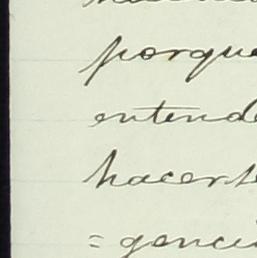 porque
entende
hacerle
= genci